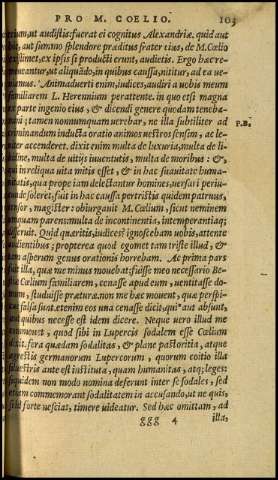 PRO M. COELIO. 103
terium, ut audistis: fuerat ei cognitus Alexandriæ. quid aut
bit, aut summo splendore præditus frater eius, de M. Cœlio
existimet, ex ipsis si producti erunt, audietis. Ergo hæc re-
moueantur, ut aliquādo, in quibus caussa, nititur, ad ea ue-
niamus. Animaduerti enim, iudices, audiri a uobis meum
familiarem L. Herennium perattente. in quo etsi magna
ex parte ingenio eius, & dicendi genere quodam teneba-
mini; tamen nonnumquam uerebar, ne illa subtiliter ad
criminandum inducta oratio animos uestros sensim, ac le-
P. B.
niter accenderet. dixit enim multa de luxuria, multa de li-
bidine, multa de uitiis iuuentutis, multa de moribus: &,
qui in reliqua uita mitis esset, & in hac suauitate huma-
nitatis, qua prope iam delectantur homines, uersari periu-
cunde soleret, fuit in hac caussa pertristis quidem patruus,
censor, magister: obiurgauit M. Cœlium, sicut neminem
umquam parens: multa de incontinentia, intemperantiaq;
disseruit. Quid quæritis, iudices? ignoscebam uobis, attente
audientibus; propterea quod egomet tam triste illud, &
tam asperum genus orationis horrebam. Ac prima pars
fuit illa, quæ me minus mouebat: fuisse meo necessario Be-
stiæ Cœlium familiarem, cenasse apud eum, uentitasse do-
mum, studuisse præturæ. non me hæc mouent, quæ perspi-
cue falsa sunt. etenim eos una cenasse dicit, qui aut absunt,
aut quibus necesse est idem dicere. Neque uero illud me
commouet, quod sibi in Lupercis sodalem esse Cœlium
dixit. fera quædam sodalitas, & plane pastoritia, atque
agrestis germanorum Lupercorum, quorum coitio illa
siluestris ante est instituta, quam humanitas, atq; leges:
siquidem non modo nomina deferunt inter se sodales, sed
etiam commemorant sodalitatem in accusando, ut ne quis,
si id forte nesciat, timere uideatur. Sed hæc omittam, ad
ggg 4 illa,